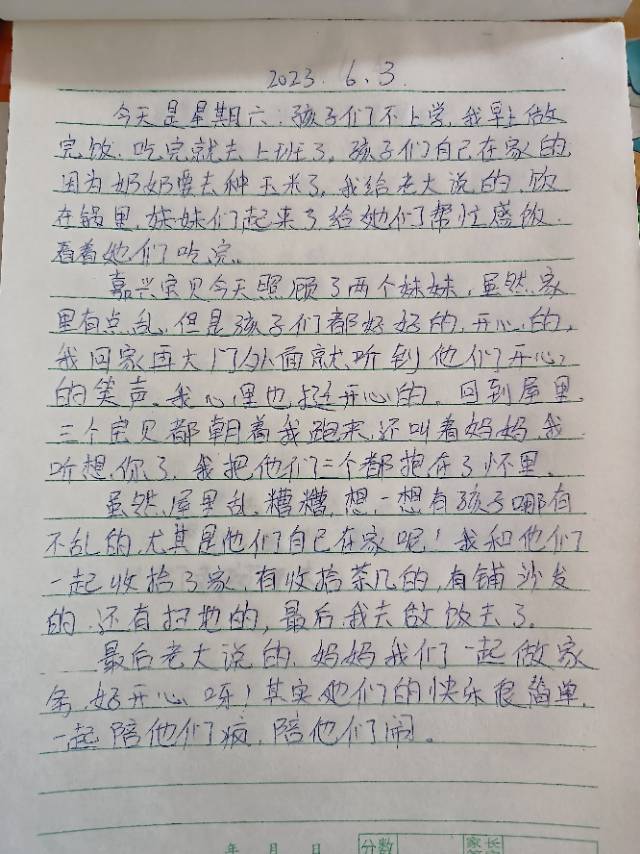 2023.6.3.
今天是星期六,孩子们不上学,我早上做
完饭,吃完就去上班了,孩子们自己在家的,
因为奶奶要去种玉米了,我给老大说的,饭
在锅里,妹妹们起来了给她们帮忙盛饭,
看着她们吃完。
嘉兴宝贝今天照顾了两个妹妹,虽然家
里有点乱,但是孩子们都好好的,开心的,
我回家再大门外面就听到他们开心
的笑声,我心里也挺开心的,回到屋里
三个宝贝都朝着我跑来,还叫着妈妈,我
听想你了,我把他们三个都抱在了怀里,
虽然屋里乱糟糟,想一想有孩子哪有
不乱的,尤其是他们自己在家呢!我和他们
一起收拾了家,有收拾茶几的,有铺沙发
的,还有扫地的,最后,我去做饭去了。
最后老大说的,妈妈我们一起做家
务,好开心呀!其实他们的快乐很简单,
一起陪他们疯,陪他们闹。
年 月 日 分数 家长